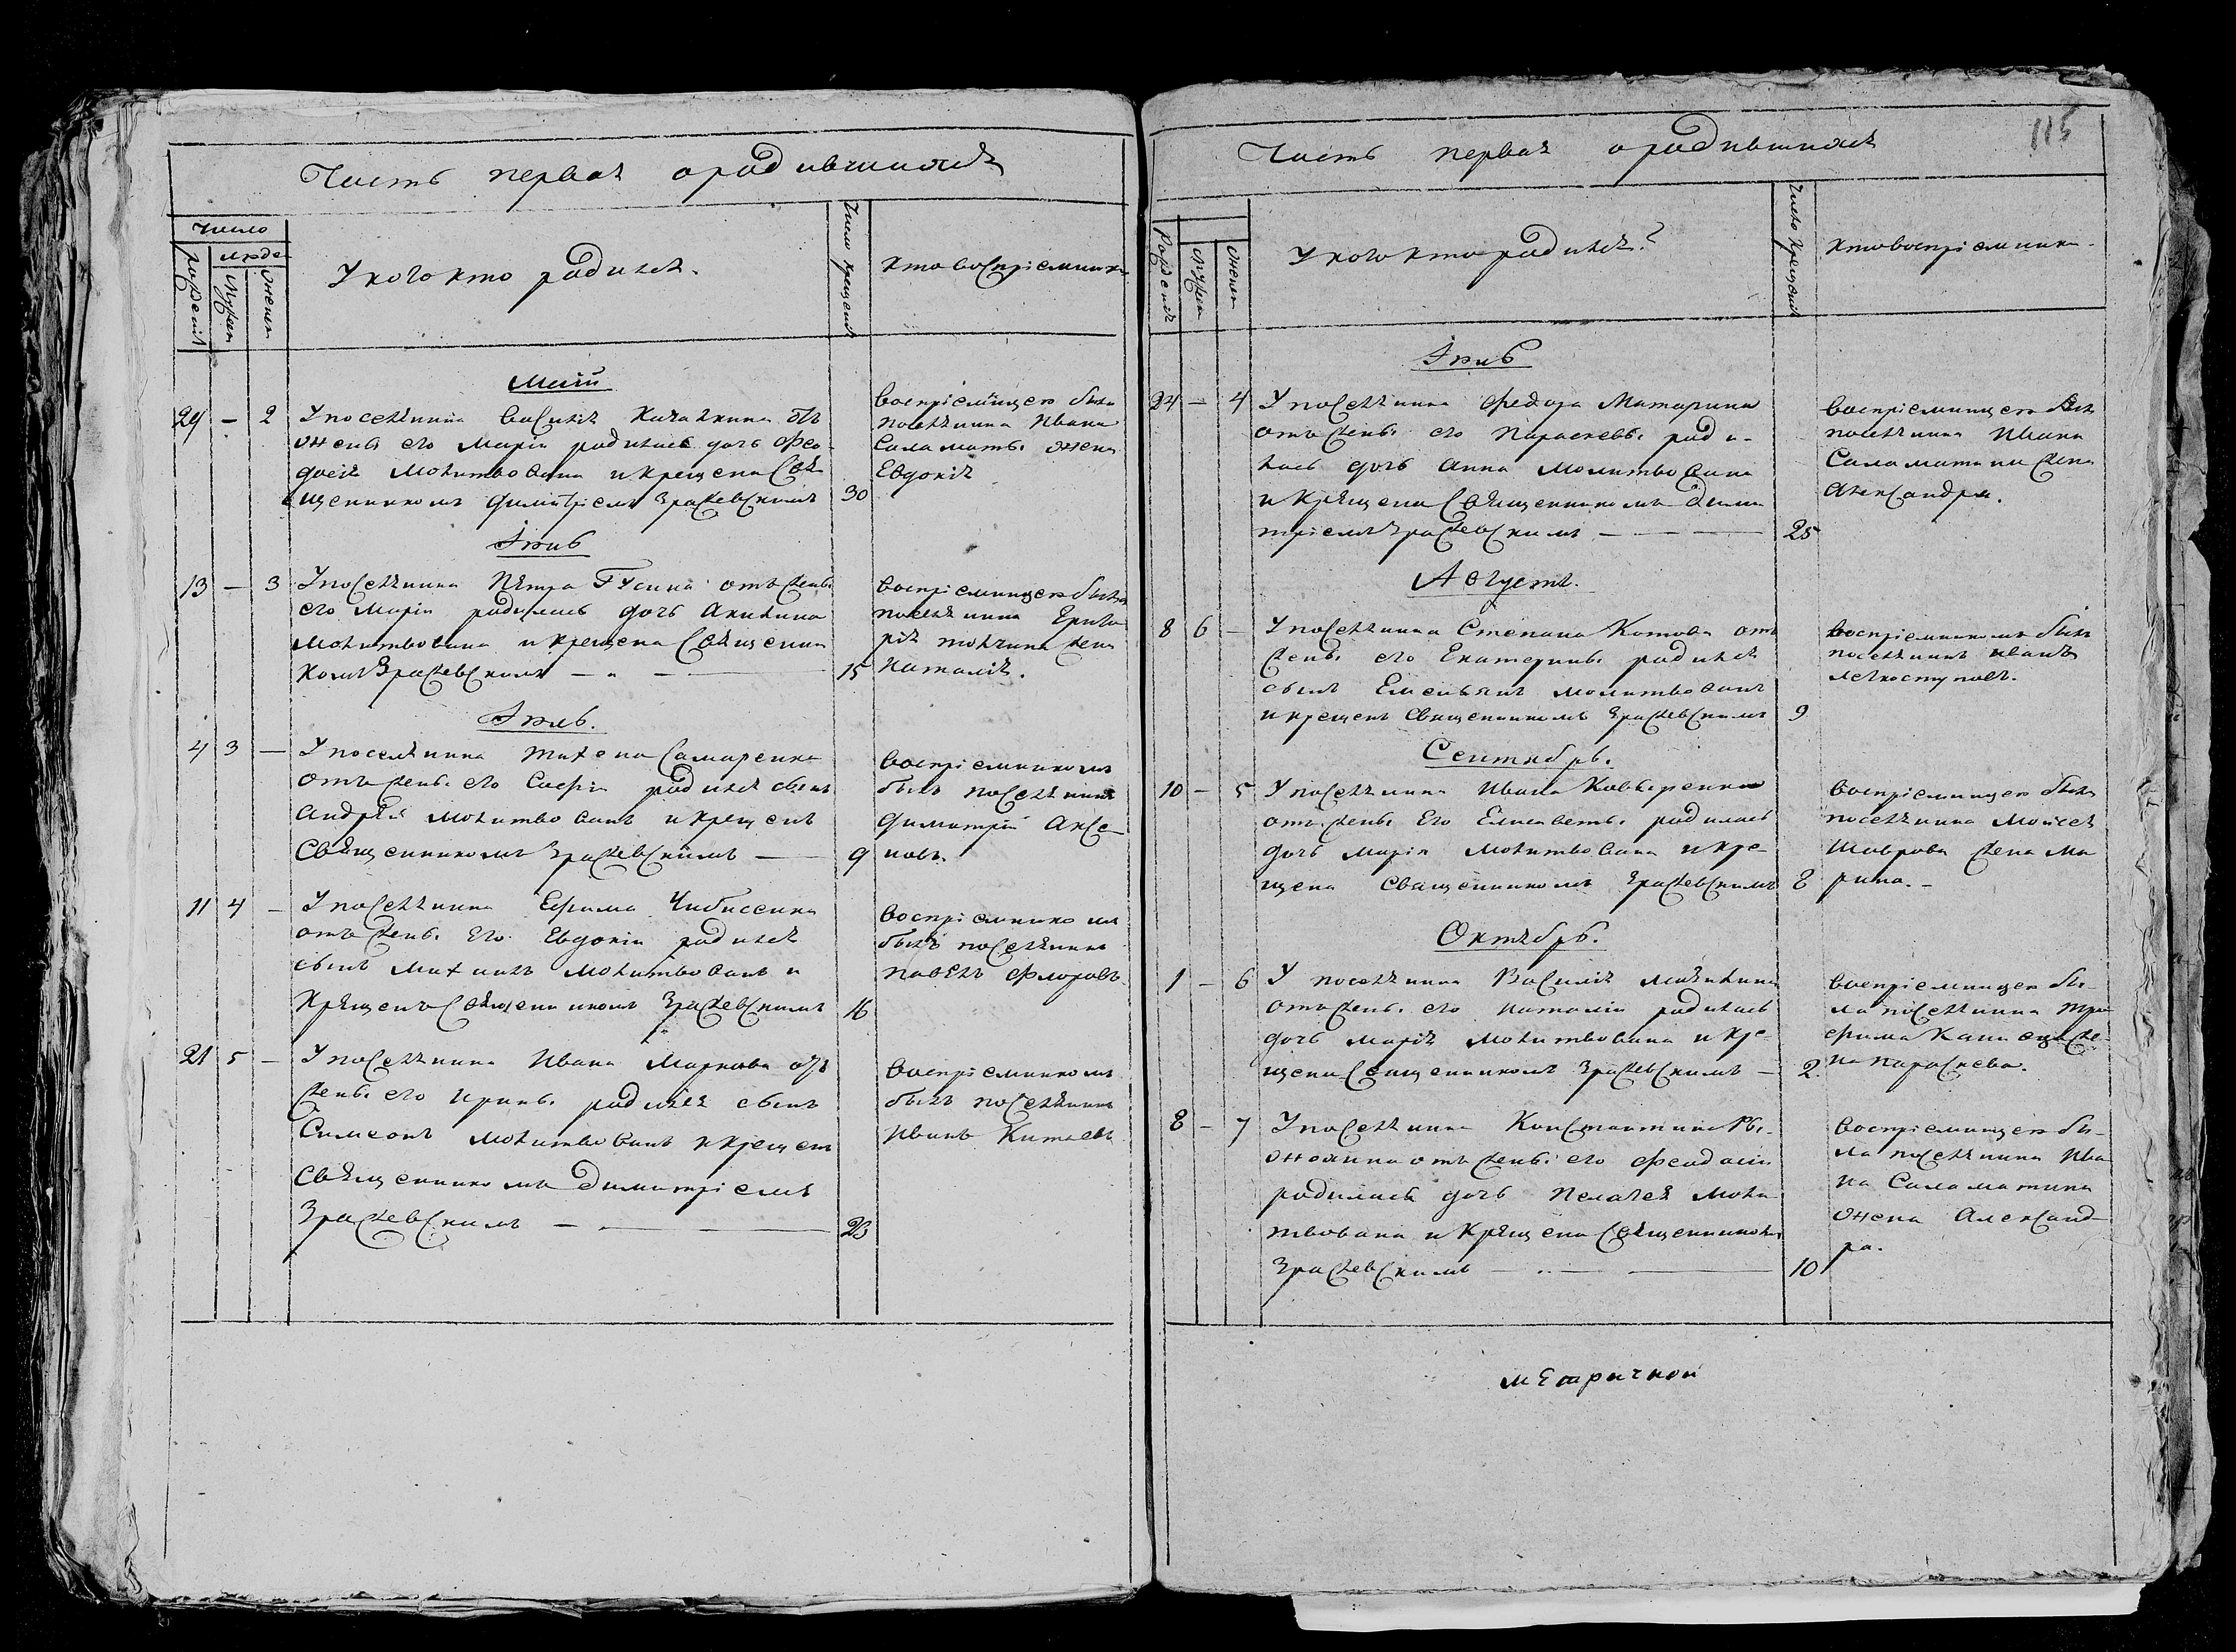 Часть первая о родившихся
Число
рожденія
людей
мужен
женен
У кого кто родился.
Число крещенія
кто воспріемники
Маій
29 - 2 У поселянина Василія отъ
жены его Маріи родилась дочь Фео-
досія молитвована и крещена Свя-
щенникомъ Димитріемъ Зражевскимъ 30
воспріемницею была
поселянина Ивана
Саламаты жена
Евдокія
Іюнь
13 - 3 У поселянина Петра Гусина отъ жены
его Маріи родилась дочь Акилина
молитвована и крещена Священни
комъ Зражевскимъ - „ - 15
воспріемницею была
поселянина Григо
рія жена
Наталія.
Іюль.
4 3 - У поселянина Тихона Самаренка
отъ жены его Софіи родился сынъ
Андрей молитвованъ и крещенъ
Священникомъ Зражевскимъ — 9
воспріемникомъ
былъ поселянинъ
Димитрій Аксе
новъ.
11 4 - У поселянина Ефима Чибисенка
отъ жены Его Евдокіи родился
сынъ Михаилъ молитвованъ и
Крещенъ Священникомъ Зражевскимъ 16
воспріемникомъ
былъ поселянинъ
Павелъ Флоровъ.
21 5 - У поселянина Ивана Маркова отъ
жены его Ирины родился сынъ
Симеонъ молитвованъ и крещенъ
Священникомъ Димитріемъ
Зражевскимъ — 23
воспріемникомъ
былъ поселянинъ
Иванъ Китаевъ
115
Часть первая о родившихся
Рожденія
мужен
женен
У кого кто родился?
Число Крещенія
кто воспріемники.
Іюль
24 - 4 У поселянина Федора Матарина
отъ жены его Параскевы роди-
лась дочь Анна молитвована
и крещена Священникомъ Дими
тріемъ Зражевскимъ — 25
воспріемницею была
поселянина Ивана
Саламатина жена
Александра.
Августъ.
8 6 - У поселянина Степана Котова отъ
жены его Екатерины родился
сынъ Емельянъ молитвованъ
и крещенъ Священникомъ Зражевскимъ 9
воспріемникомъ былъ
поселянинъ Иванъ
Легкоступовъ.
Сентябрь.
10 - 5 У поселянина Ивана
отъ жены Его Елисаветы родилась
дочь Марія молитвована и кре-
щена Священникомъ Зражевскимъ 8
воспріемницею была
поселянина Моисея
Шаврова жена Ма
рина. -
Октябрь.
1 - 6 У поселянина Василія
отъ жены его Наталіи родилась
дочь Марія молитвована и кре-
щена Священникомъ Зражевскимъ — 2.
воспріемницею бы-
ла поселянина Тро
фима же-
на Параскева.
8 - 7 У поселянина Константина Ры-
жохина отъ жены его Феодосіи
родилась дочь Пелагея моли
твована и Крещена Священникомъ
Зражевскимъ — 10
воспріемницею бы-
ла поселянина Ива
на Саламатина
жена Александ-
ра.
метричной